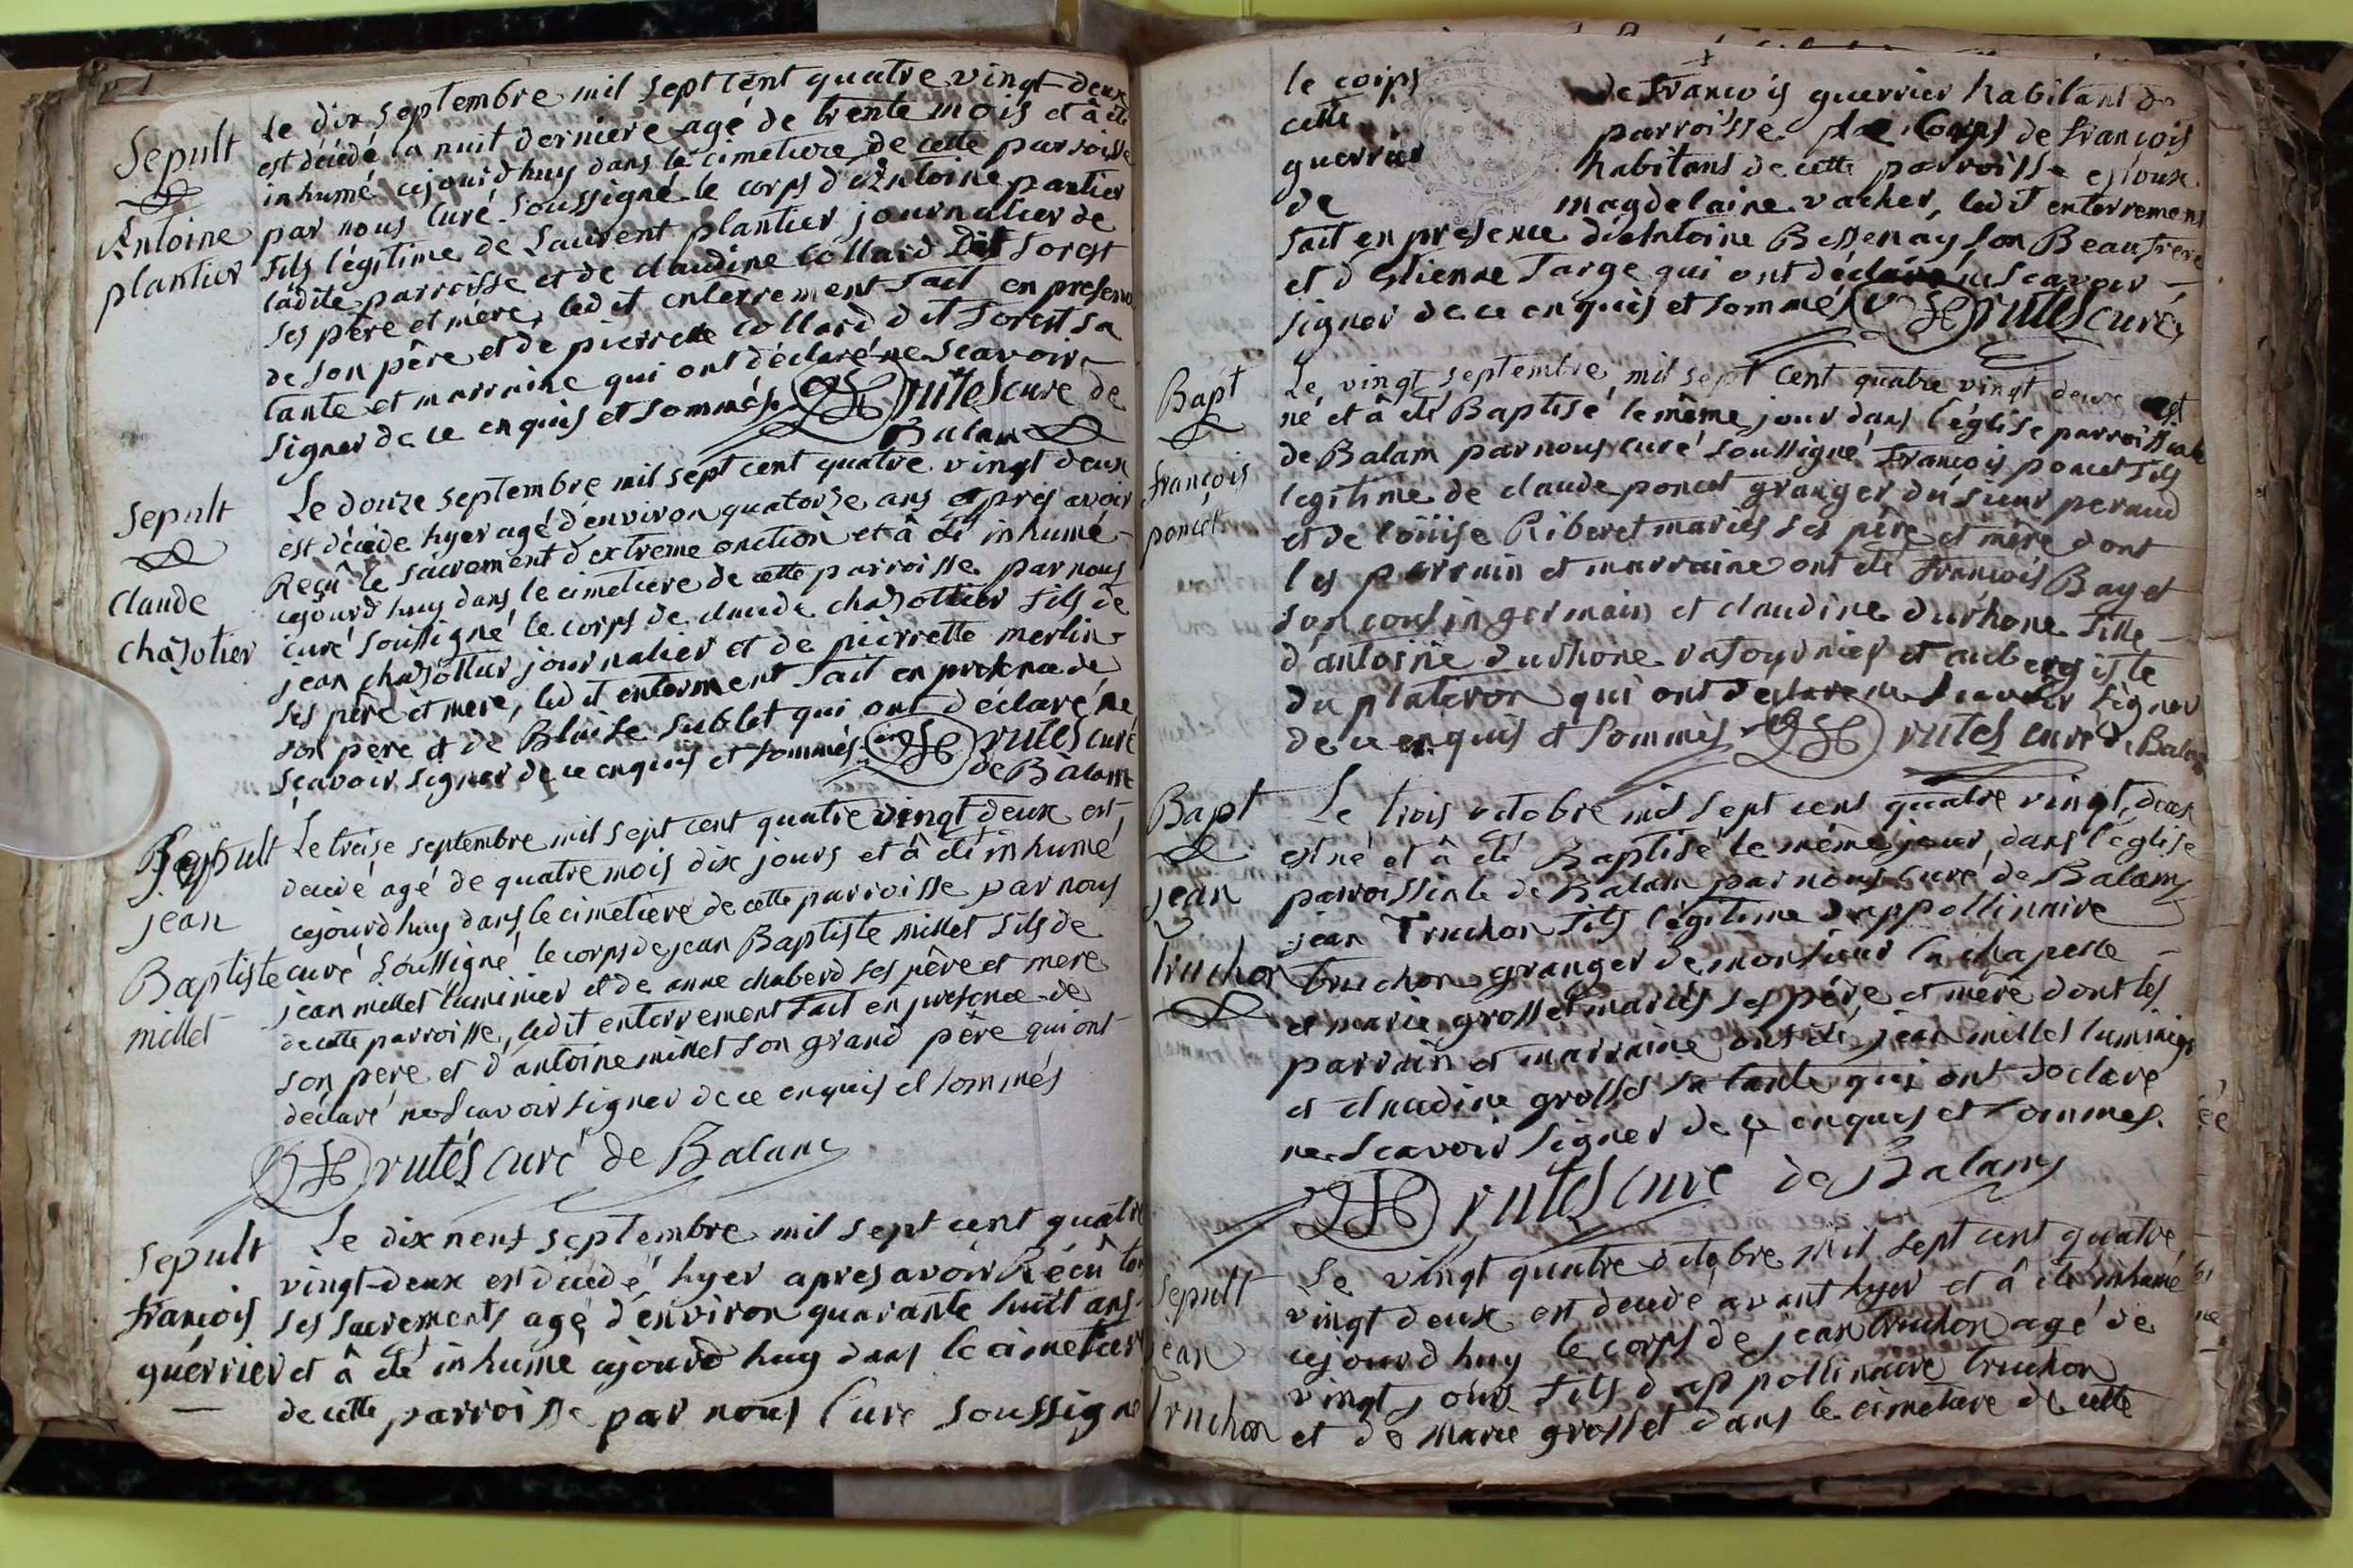 Sepult
Antoine
plantier
Le dix septembre mil sept cent quatre vingt-deux
est décédé la nuit derniere agé de trente mois et â été
inhumé cejourd huy dans le cimetiere de cette parroisse
par nous Curé soussigné le corps d'Antoine pantier
fils légitime de Laurent plantier journalier de
ladite parroisse et de claudine Collard Dit forest
ses père et mére, ledit enterrement fait en presence
de son père et de pierrette Collard dit forest sa
tante et marraine qui ont déclaré ne scavoir
signer de ce enquis et sommés Brutes cure de
Balan
Sepult
Claude
chazotier
Le douze septembre mil sept cent quatre vingt deux
est décédé hyer agé d'environ quatorse ans apres avoir
Reçû le sacrement d extreme onction et â été inhumé
cejourd huy dans le cimetiere de cette parroisse par nous
curé soussigné le corps de claude chazottier fils de
jean chazottier journalier et de pierrette merlin
ses père et mere, ledit enterment fait en presence de
son pere et de Blaise sublet qui ont déclaré ne
scavoir signer de ce enquis et sommés Brutes curé
de Balan
Sepult
jean
Baptiste
millet
Le treise septembre mil sept cent quatre vingt deux est
decédé agé de quatre mois dix jours et â été inhumé
cejourd huy dans le cimetiere de cette parroisse par nous
curé soussigné le corps de jean Baptiste millet fils de
jean millet luminier et de anne chaberd ses père et mere
de cette parroisse, ledit enterrement fait en presence de
son pere et d'antoine millet son grand père qui ont
déclaré ne scavoir signer de ce enquis et sommés
Brutés curé de Balan
Sepult
françois
guerrier
Le dix neuf septembre mil sept cent quatre
vingt-deux est décédé hyer apres avoir Récû tous
ses sacrements agé d'environ quarante huit ans
et â été inhumé cejourd huy dans le cimetiere
de cette parroisse par nous Curé soussigné
le corps de francois guerrier habitant de
cette parroisse le Corps de francois
guerrier habitans de cette parroisse epoux
de magdelaine vacher, ledit enterrement
fait en presence d'Antoine Bessenay son Beaufrere
et d Etienne Targe qui ont déclaré ne scavoir
signer de ce enquis et sommés Brutes curé
Bapt
françois
poncet
Le vingt septembre mil sept cent quatre vingt deux est
né et â été Baptisé le même jour dans l'église parroissiale
de Balam par nous curé soussigné françois poncet fils
legitime de claude poncet granger du sieur peraud
et de loüise Riberet mariés ses père et mère dont
les parrain et marraine ont été francois Bayet
son cousin germain et claudine durhone fille
d'antoine durhone et aubergiste
du plateron qui ont declaré ne scavoir signer
de ce enquis et sommés Brutes curé de Balan
Bapt
jean
truchon
Le trois octobre mil sept cent quatre vingt deux
est né et â été Baptisé le même jour dans l'église
parroissiale de Balam par nous curé de Balam
jean Truchon fils légitime d'appollinaire
truchon granger de monsieur la chapelle
et marie grosset mariés ses père et mère dont les
parrain et marraine ont été jean millet luminier
et claudine grosset sa tante qui ont declaré
ne scavoir signer de ce enquis et sommés.
Brutes curé de Balam
Sepult
jean
truchon
Le vingt quatre octobre mil sept cent quatre
vingt deux est decedé avant hyer et â été inhumé
cejourd huy le corps de jean truchon agé de
vingt jours fils d appollinaire truchon
et de Marie grosset dans le cimetiere de cette